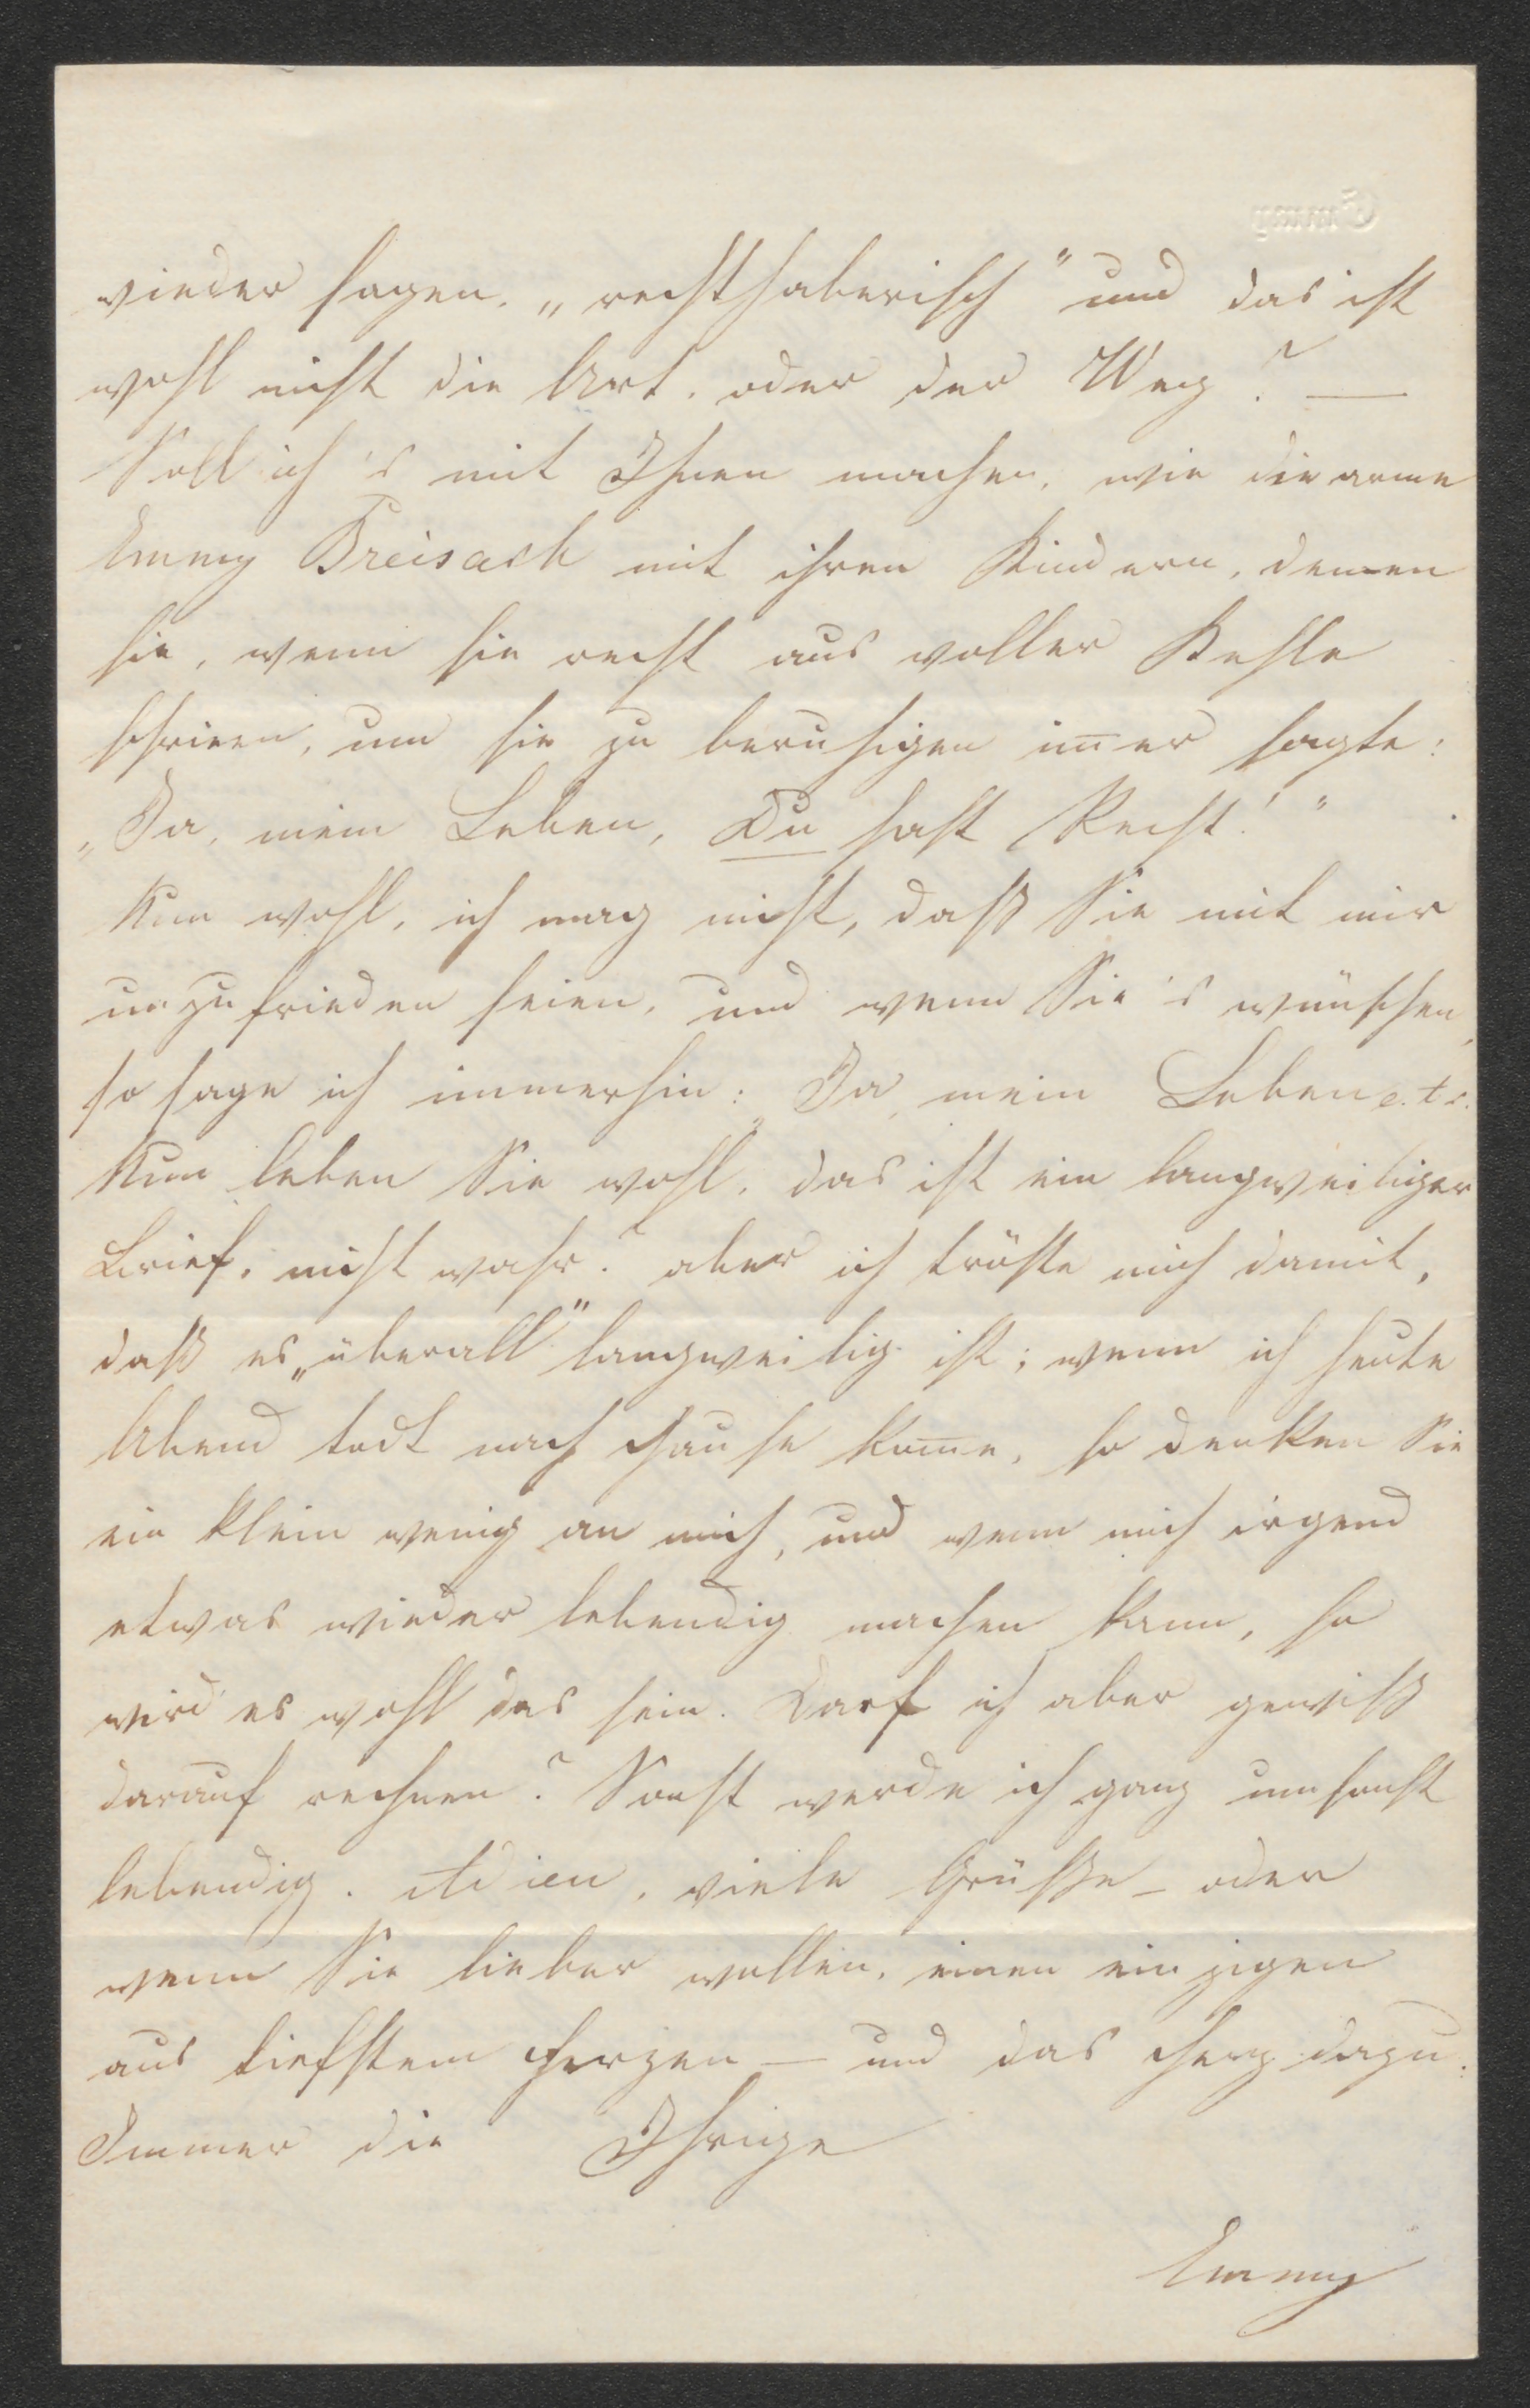 Emmy
wieder sagen, „rechthaberisch" und das ist
wohl nicht die Art, oder der Weg? —
Soll ich's mit Ihnen machen, wie die arme
Emmy Breisach mit ihren Kindern, denen
sie, wenn sie recht aus voller Kehle
schrieen, um sie zu beruhigen im̄er sagte:
„Ja, mein Leben, Du hast Recht!"
Nun wohl, ich mag nicht, daß Sie mit mir
unzufrieden seien, und wenn Sie's wünschen,
so sage ich immerhin: „Ja, mein Leben e.t.c.
Nun leben Sie wohl, das ist ein langweiliger
Brief, nicht wahr? aber ich tröste mich damit,
daß es „überall" langweilig ist; wenn ich heute
Abend todt nach Hause kom̄e, so denken Sie
ein klein wenig an mich, und wenn mich irgend
etwas wieder lebendig machen kann, so
wird es wohl das sein. Darf ich aber gewiß
darauf rechnen? Sonst werde ich ganz umsonst
lebendig. Adieu, viele Grüße – oder
wenn Sie lieber wollen, einen einzigen
aus tiefstem Herzen — und das Herz dazu.
Immer die Ihrige
Emmy